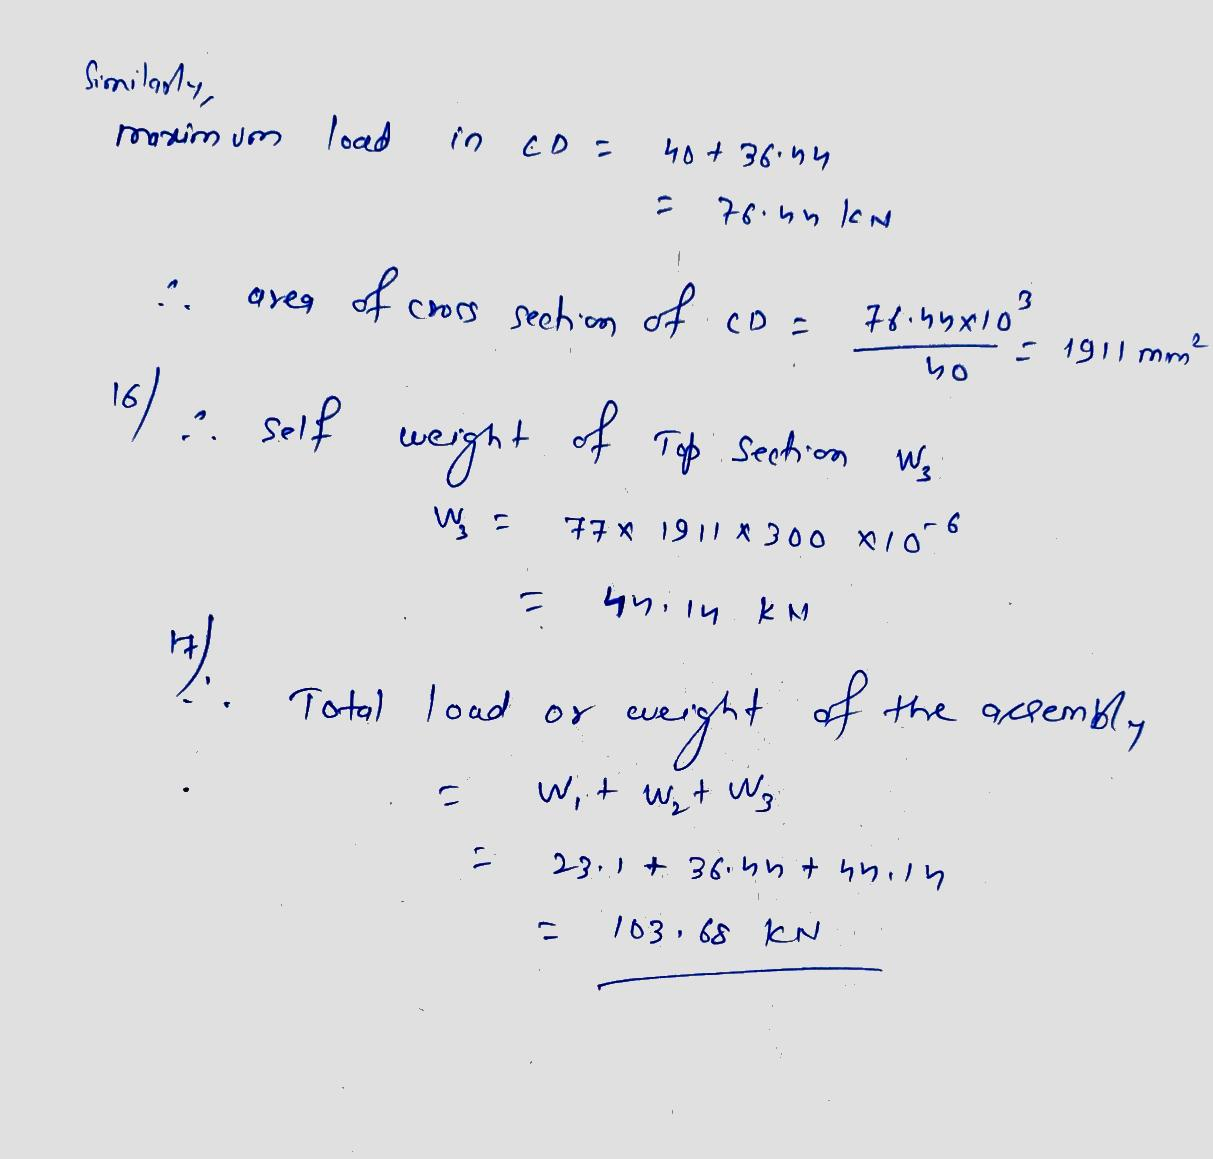 Similarly,
maximum load in CD = 40 + 36.44
= 76.44 kN
∴ area of cross section of CD = 76.44×10³ / 40 = 1911 mm²
16/ ∴ self weight of Top section W₃
W₃ = 77 × 1911 × 300 × 10⁻⁶
= 44.14 KN
17/ ∴ Total load or weight of the assembly
= W₁ + W₂ + W₃
= 23.1 + 36.44 + 44.14
= 103.68 KN